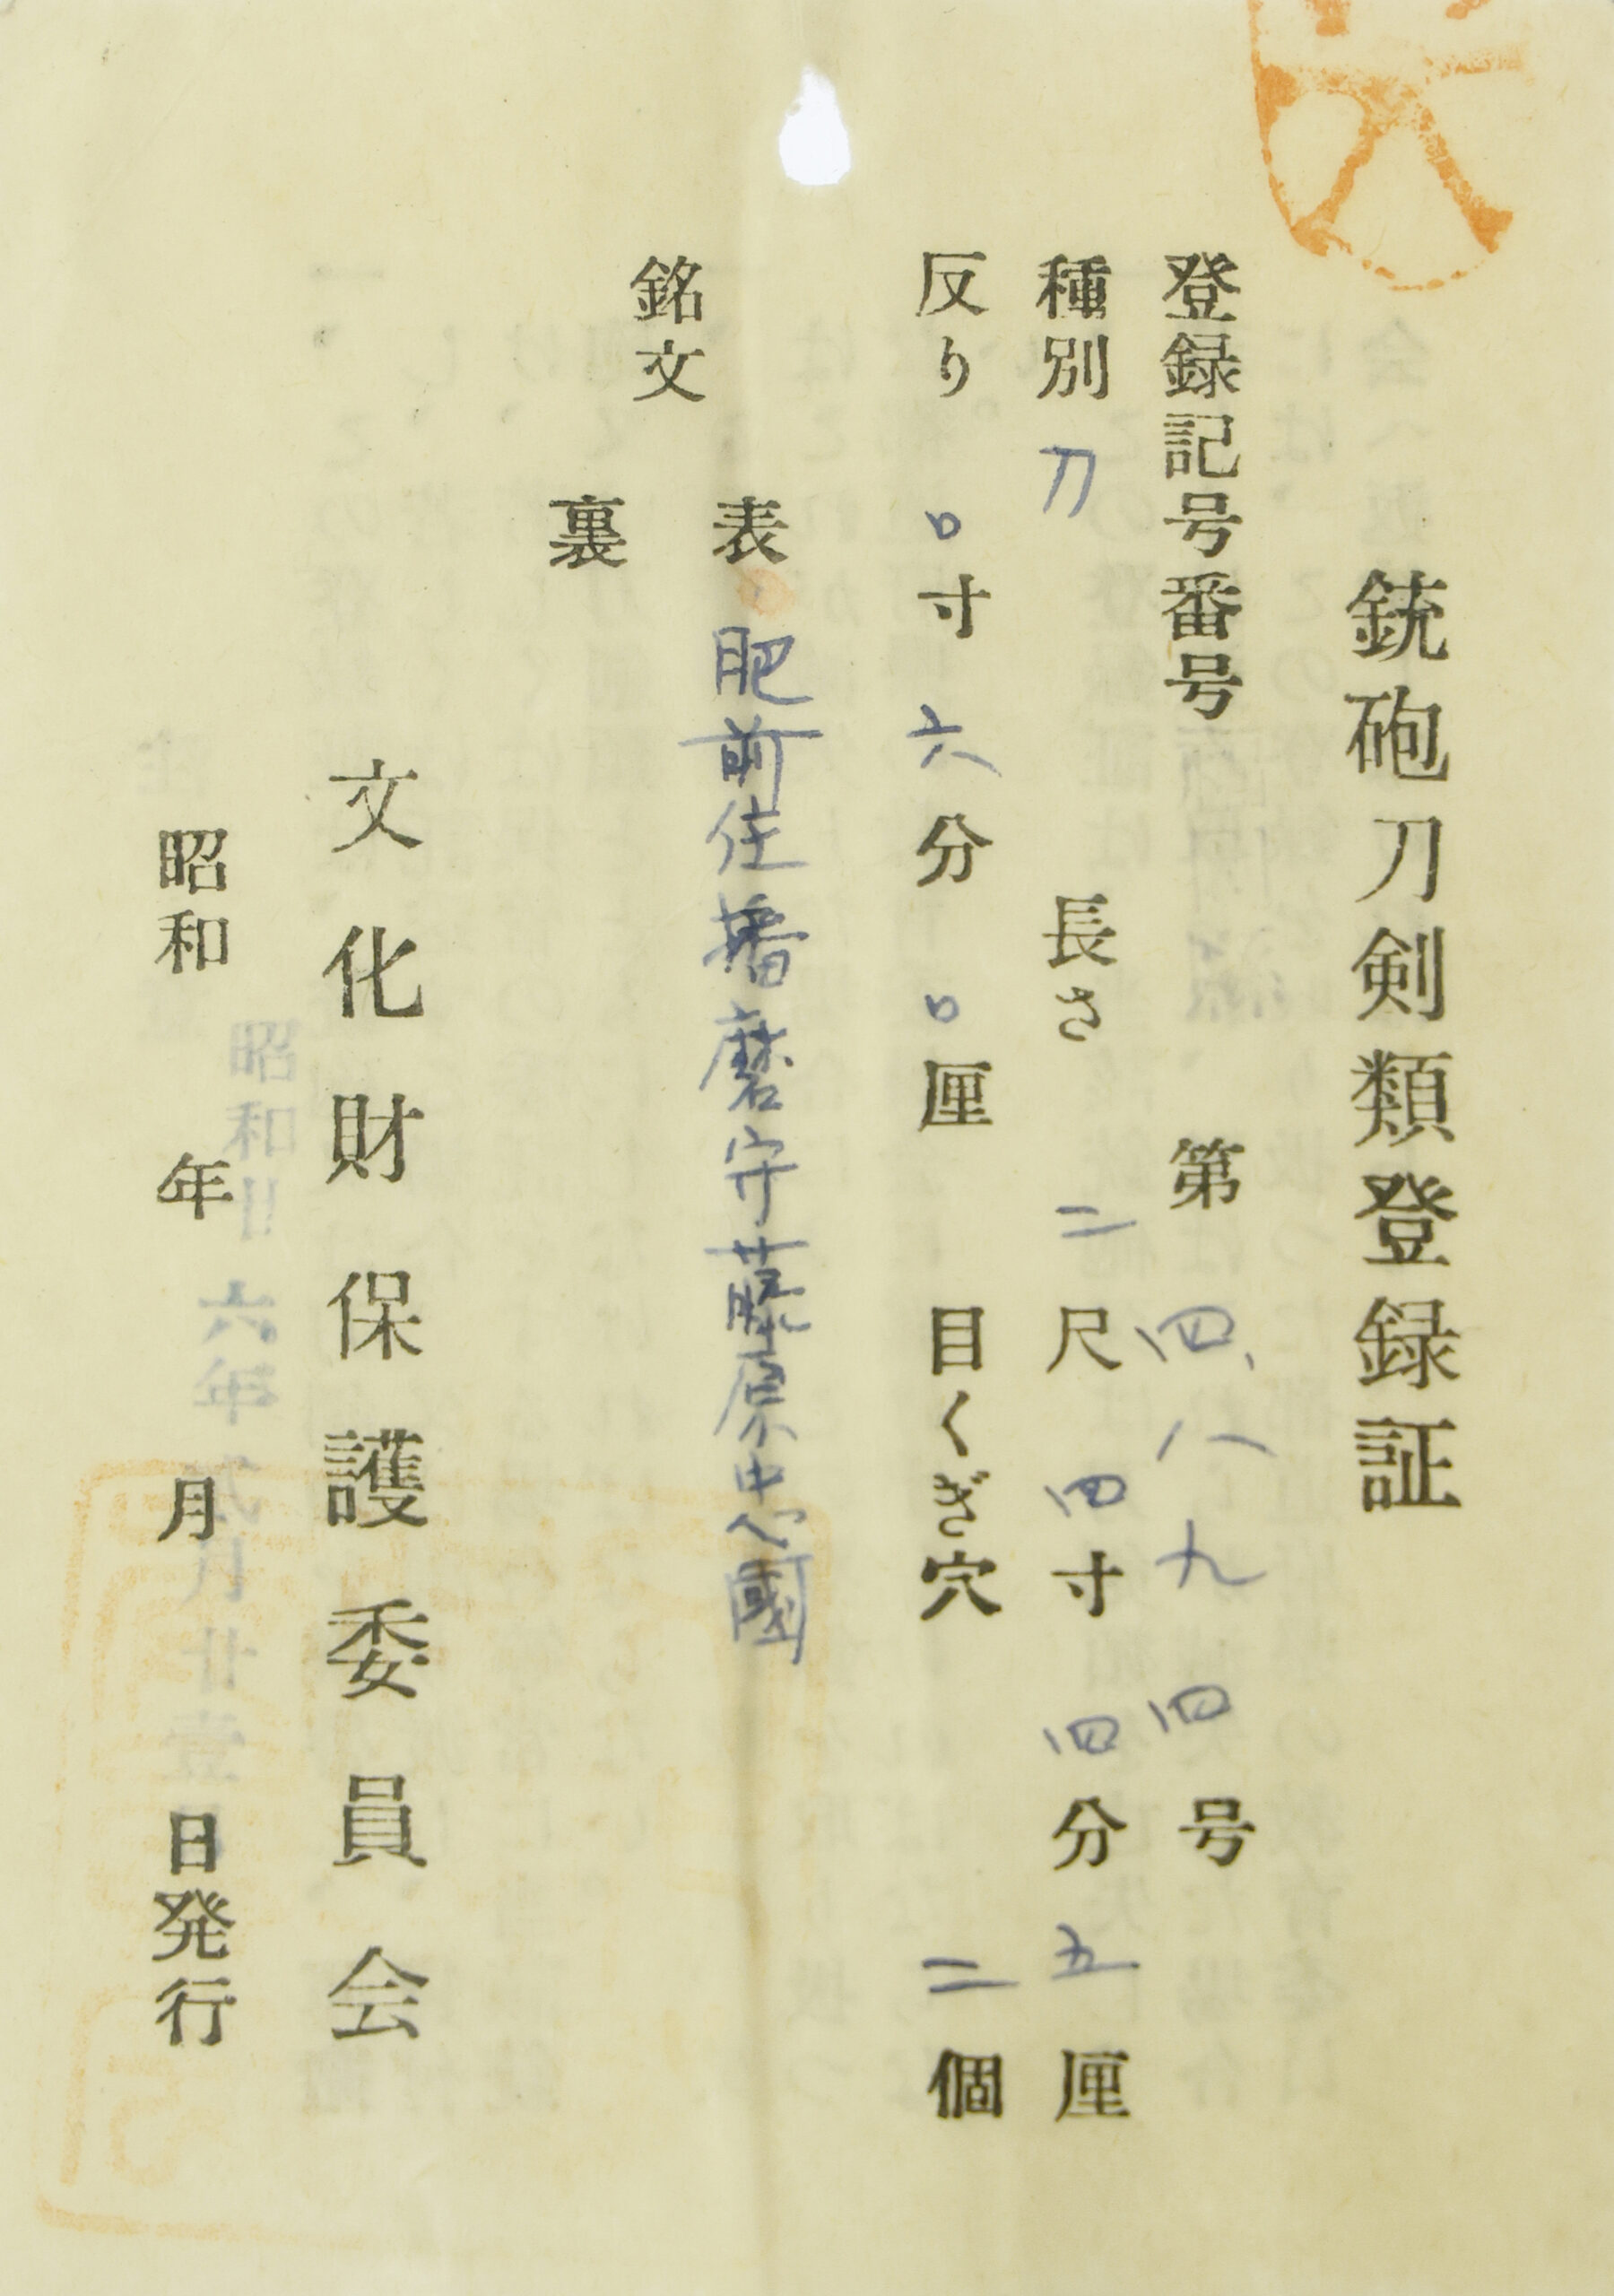 銃砲刀剣類登録証
登録記号番号 第四八九四号
種別 刀 長さ 二尺四寸四分五厘
反り 〇寸六分〇厘 目くぎ穴 二個
銘文
表 肥前住播磨守藤原忠國
裏
文化財保護委員会
昭和 年 月 日発行
昭和廿六年 月廿壹